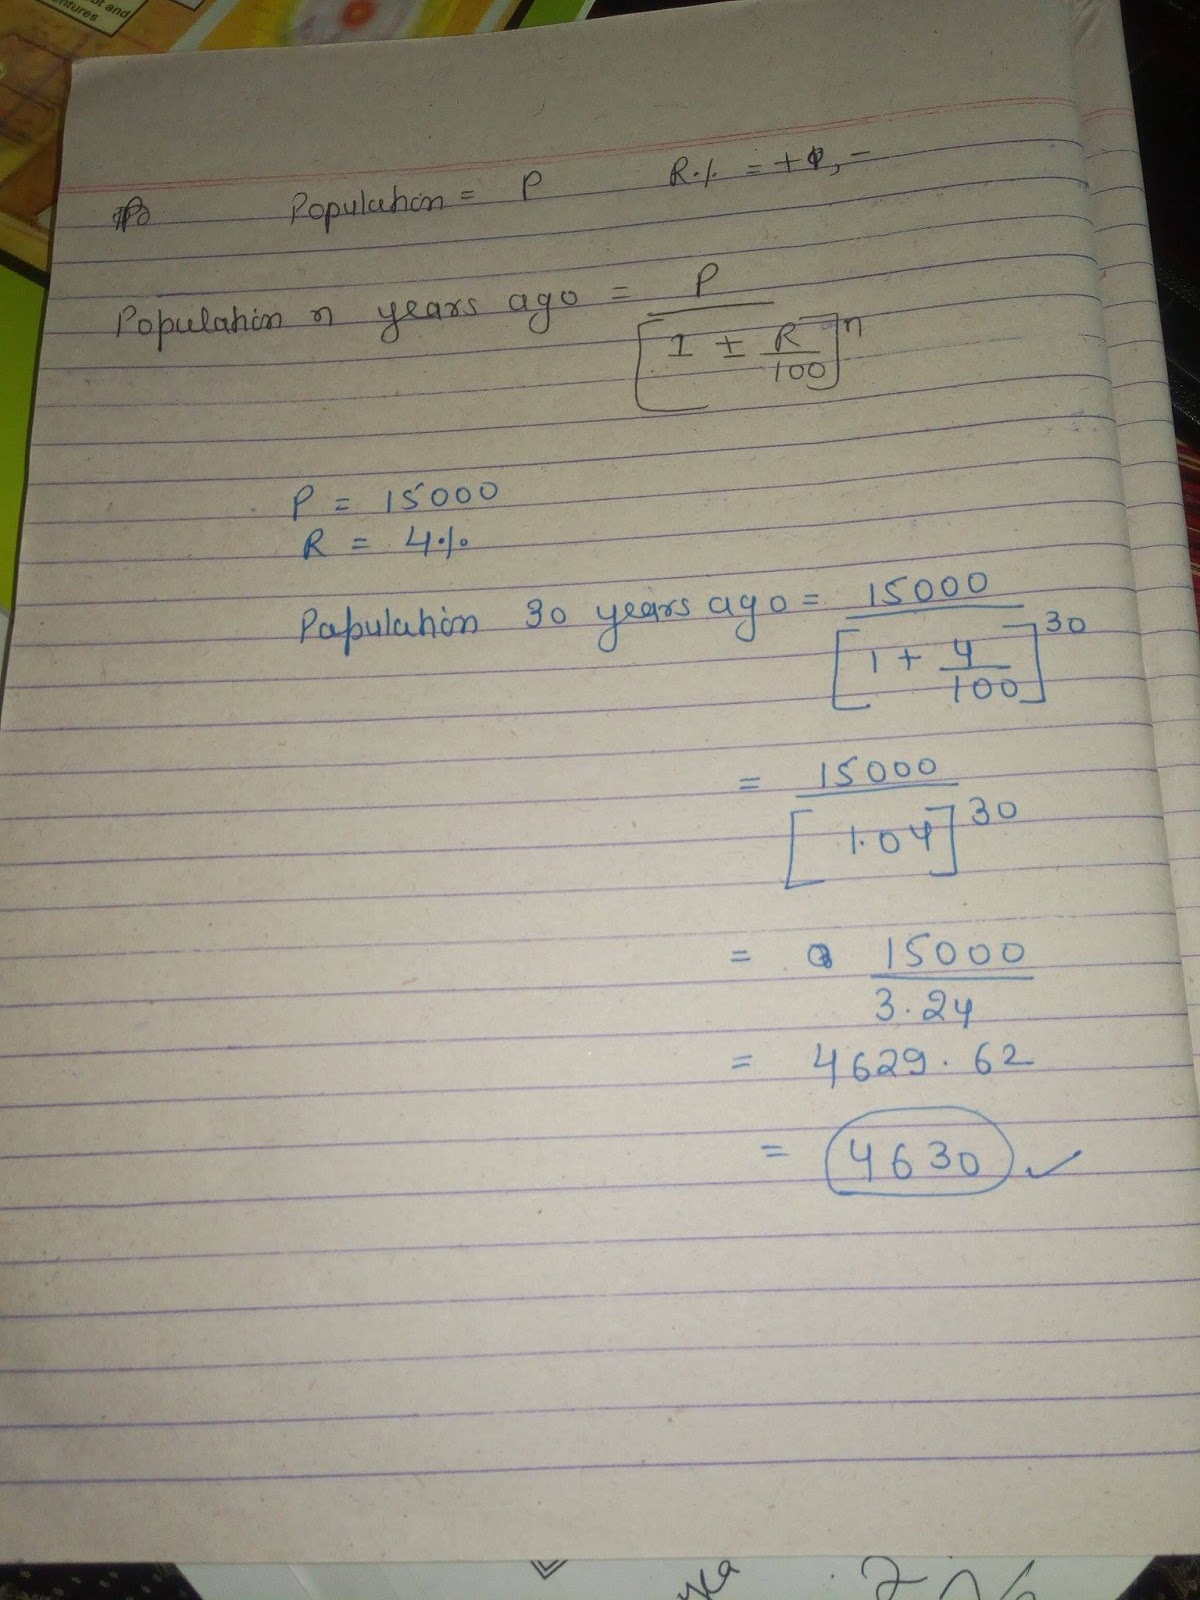 ut and
ntures
Population = P R·/. = +, -
Population n years ago = P
[1 ± R/100]^n
P = 15000
R = 4·/.
Papulation 30 years ago = 15000
[1 + 4/100]^30
= 15000
[1.04]^30
= 15000
3.24
= 4629.62
= 4630 ✓